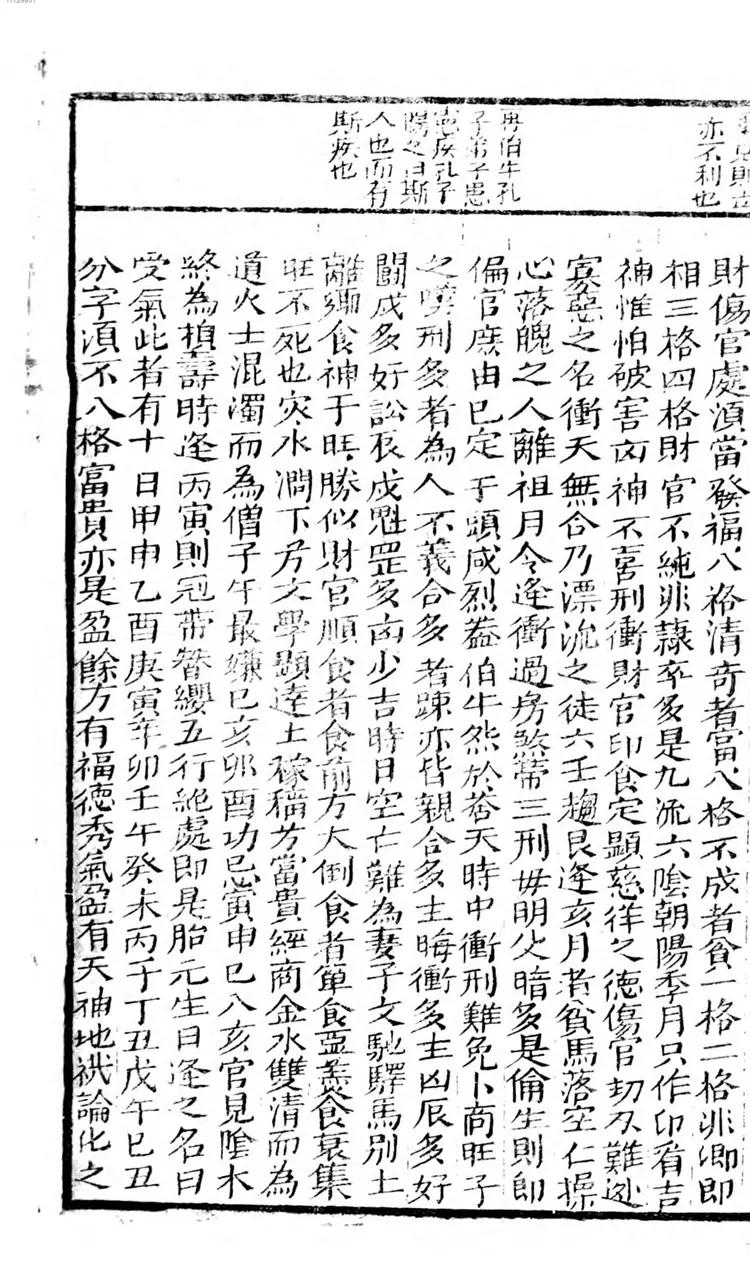 亦不利也
冉伯牛孔
子弟子患
惡疾孔子
傷之曰斯
人也而有
斯疾也
財傷官處湏當發福八格清奇者富八格不成者貧一格二格非卿即
相三格四格財官不純非隷卒多是九流六陰朝陽季月只作印看吉
神惟怕破害凶神不喜刑衝財官印食定顯慈祥之德傷官刼刄難逃
寡惡之名衝天無合乃漂流之徒六壬趨艮逢亥月者貧馬落空亡操
心落魄之人離祖月令逢衝過房煞帶三刑毋明父暗多是偷生則即
偏官庻由巳定于頭咸烈葢伯牛怨於蒼天時中衝刑難免卜商旺子
之嘆刑多者為人不義合多者踈亦皆親合多主晦衝多主凶辰多好
鬪戌多好訟辰戌魁罡多凶少吉時日空亡難為妻子文馳驛馬別土
離鄉食神于旺勝似財官順食者食前方大倒食者簞食壼羹食衰集
旺不死也灾水潤下方文學顯達土稼穡方當貴經商金水雙清而為
道火土混濁而為僧子午最嫌巳亥卯酉切忌寅申巳八亥官見隂木
終為損壽時逢丙寅則冠帶簪纓五行絶處即是胎元生日逢之名曰
受氣此者有十日甲申乙酉庚寅辛卯壬午癸未丙子丁丑戊午巳丑
分字湏不八格富貴亦是盈餘方有福德秀氣盈有天神地祇論化之